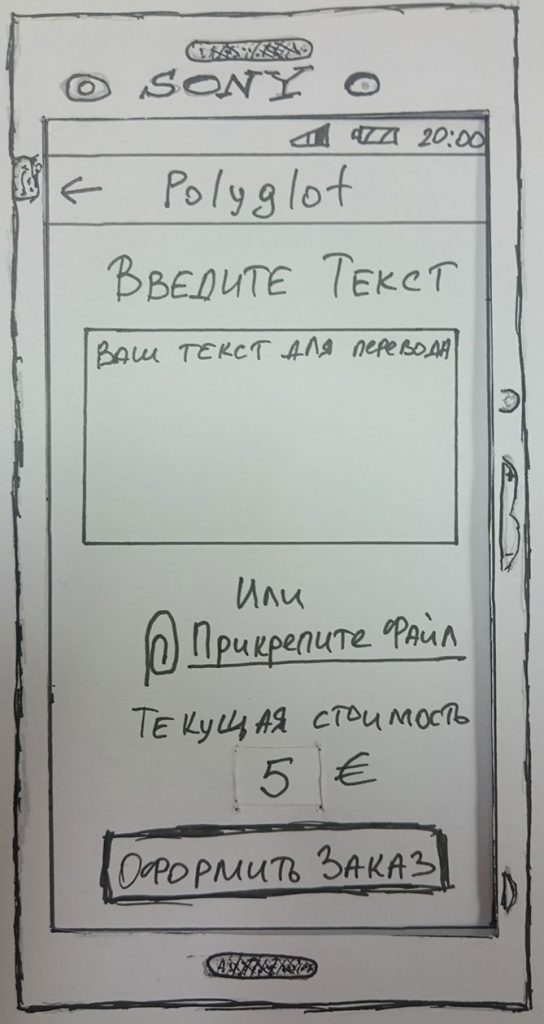 SONY
20:00
Polyglot
Введите Текст
Ваш текст для перевода
Или
Прикрепите Файл
Текущая стоимость
5 €
Оформить Заказ